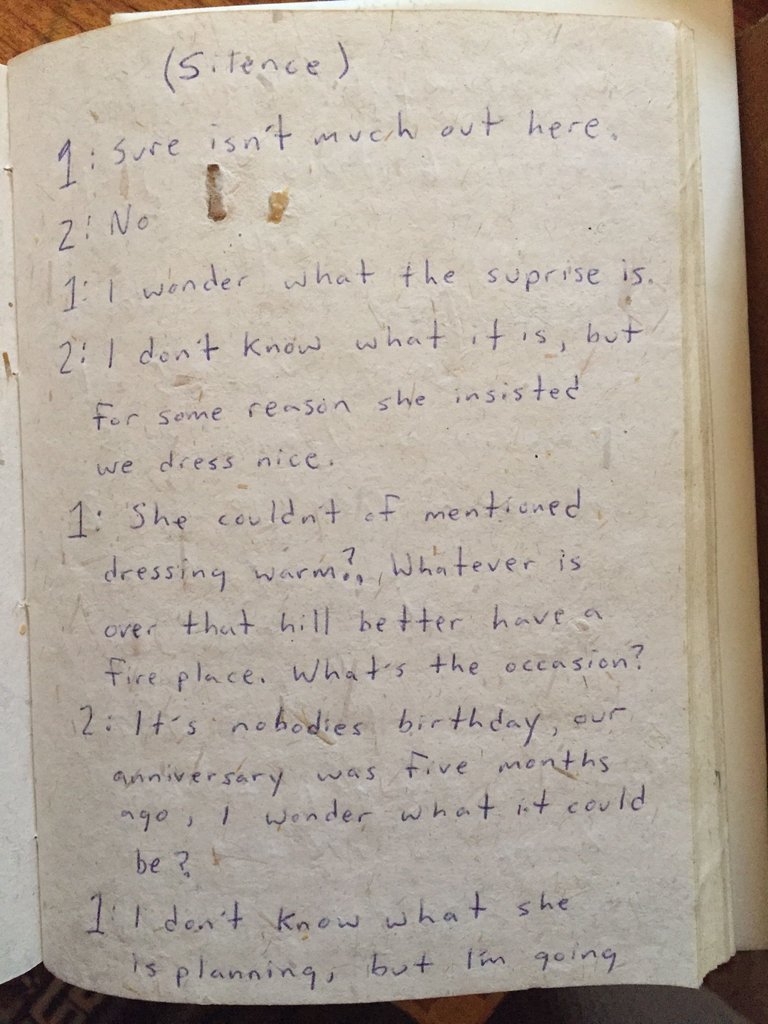 (Silence)
1: Sure isn't much out here.
2: No
1: I wonder what the suprise is.
2: I don't know what it is, but
for some reason she insisted
we dress nice.
1: She couldn't of mentioned
dressing warm?.. Whatever is
over that hill better have a
fire place. What's the occasion?
2: It's nobodies birthday, our
anniversary was five months
ago, I wonder what it could
be?
1: I don't know what she
is planning, but I'm going